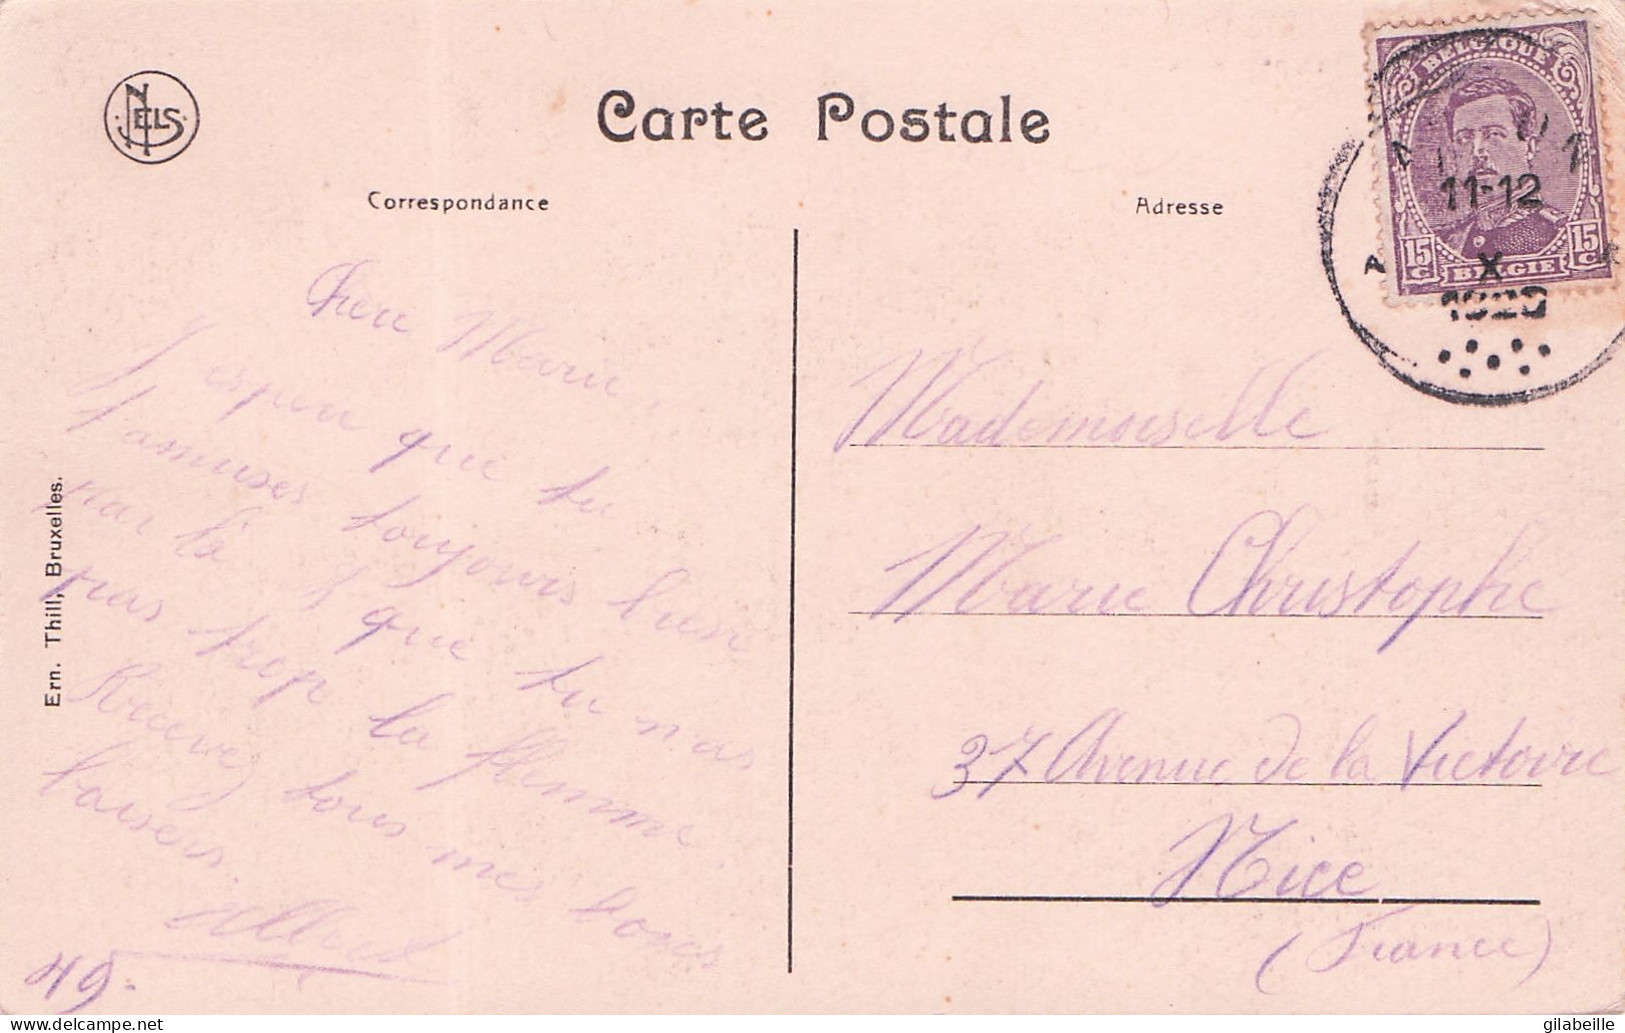 NELS
Carte Postale
Correspondance
Adresse
BELGIQUE
15 C
15 C
BELGIE
11-12
X
1920
Ern. Thill, Bruxelles.
Chère Marie,
J'espère que tu
t'amuses toujours bien
par là & que tu n'as
pas trop la flemme.
Recevez tous mes bons
baisers.
Albert
49.
Mademoiselle
Marie Christophe
37 Avenue de la Victoire
Nice
(France)
delcampe.net
gilabeille